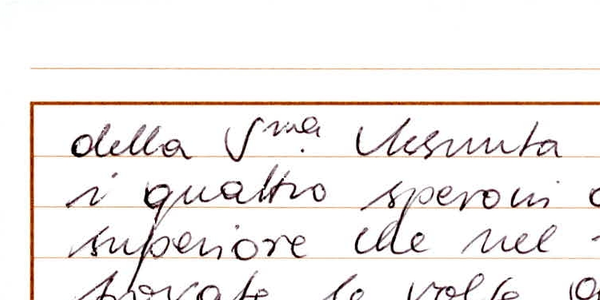 della S.ma Assunta
i quattro speroni
superiore che nel
trovate le volte